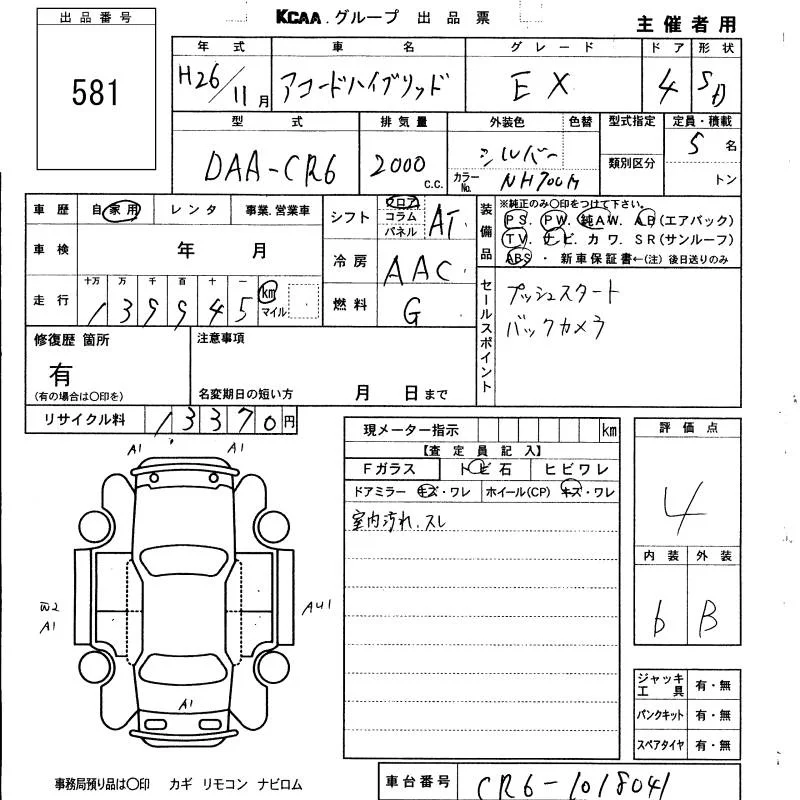 出品番号
581
KCAA.グループ 出品票
主催者用
年式 車名 グレード ドア 形状
H26/11月 アコードハイブリッド EX 4 SD
型式 排気量 外装色 色替 型式指定 定員・積載
DAA-CR6 2000 c.c. シルバー 5名
カラーNo. NH700M 類別区分 トン
車歴 自家用 レンタ 事業.営業車
車検 年 月
走行 十万 万 千 百 十 一
139945 km マイル
シフト フロア コラム パネル AT
冷房 AAC
燃料 G
装備品
※純正のみ〇印をつけて下さい。
PS. PW. 純AW. AB(エアバック)
TV. ナビ. カワ. SR(サンルーフ)
ABS ・ 新車保証書←(注)後日送りのみ
セールスポイント
プッシュスタート
バックカメラ
修復歴 箇所
有
(有の場合は〇印を)
注意事項
名変期日の短い方 月 日まで
リサイクル料 13370円
現メーター指示 km
【査定員記入】
Fガラス トビ石 ヒビワレ
ドアミラー キズ・ワレ ホイール(CP) キズ・ワレ
室内汚れ.スレ
評価点
4
内装 外装
b B
A1 A1
W2
A1
AU1
A1
ジャッキ工具 有・無
パンクキット 有・無
スペアタイヤ 有・無
事務局預り品は〇印 カギ リモコン ナビロム
車台番号 CR6-1018041